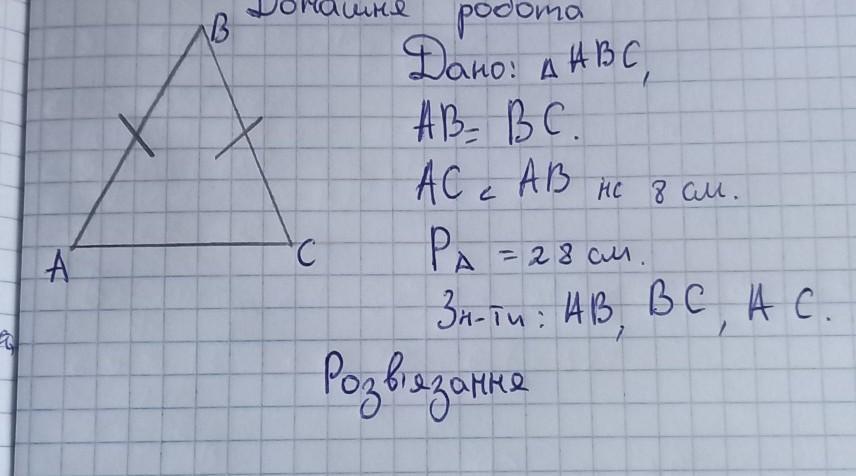 Домашня робота
B
Дано: △ ABC,
AB = BC.
AC < AB на 8 см.
P△ = 28 см.
A
C
Зн-ти: AB, BC, AC.
Розв'язання